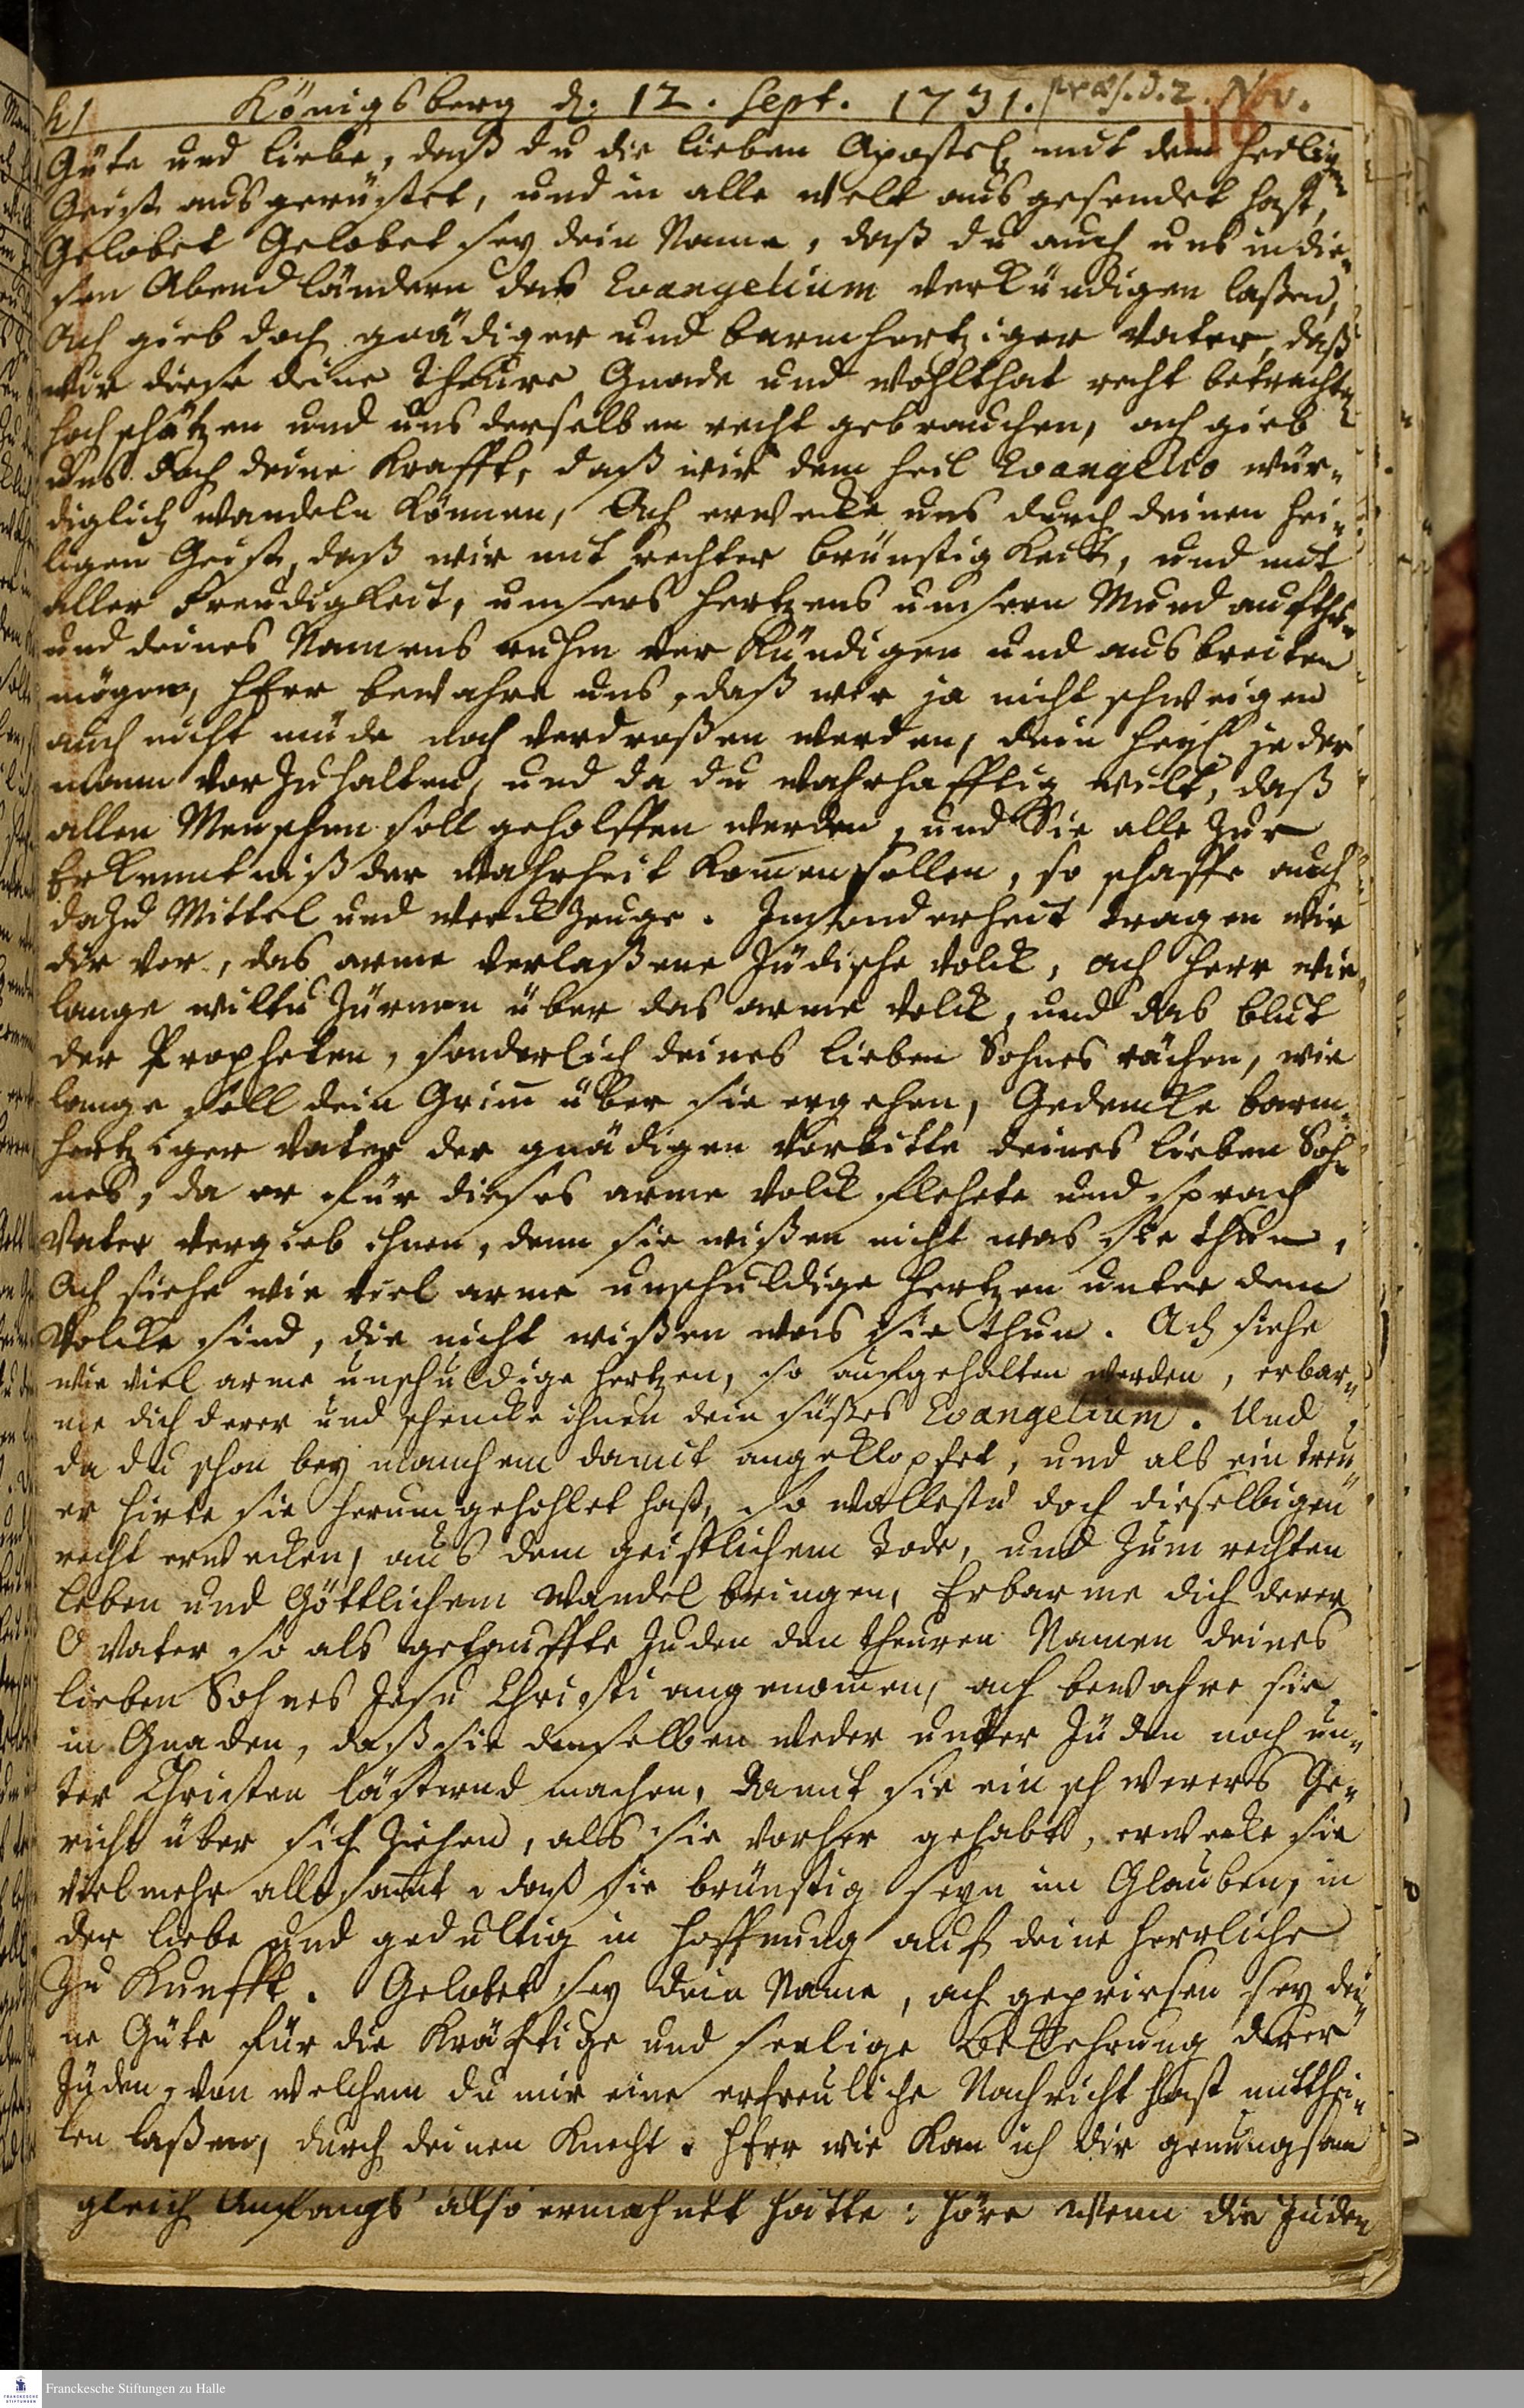 h) Königsberg d. 12. Sept. 1731. præs. d. 2. Nov.
116
Güte und Liebe, daß du die lieben Apostel mit dem Heiligen
Geist ausgerüstet, und in alle Welt ausgesendet hast,
Gelobet Gelobet sey dein Name, daß du auch uns in die-
sen Abendländern das Evangelium verkündigen laßen,
Ach gieb doch gnädiger und barmhertziger Vater, daß
wir diese deine theure Gnade und Wohlthat recht betrachten
hochschätzen und uns derselben recht gebrauchen, ach gieb
uns doch deine Krafft, daß wir dem heil Evangelio wür-
diglich wandeln können, Ach erwecke uns durch deinen hei-
ligen Geist, daß wir mit rechter brünstigkeit, und mit
aller Freudigkeit, unsers Hertzens unsern Mund aufthun
und deines Namens ruhm verkündigen und ausbreiten
mögen, HErr bewahre uns, daß wir ja nicht schweigen
auch nicht müde noch verdroßen werden, dein Heyl jeder
mann vorzuhalten, und da du wahrhafftig wilt, daß
allen Menschen soll geholffen werden, und Sie alle zur
Erkenntniß der Wahrheit kom̄en sollen, so schaffe auch
dazu Mittel und Werckzeuge. Insonderheit tragen wir
dir vor, das arme verlaßene Jüdische Volck, ach Herr wie
lange wiltu Zürnen über das arme Volck, und das Blut
der Propheten, sonderlich deines lieben Sohnes rächen, wie
lange soll dein Grim̄ über sie ergehen, Gedencke barm-
hertziger Vater der gnädigen Vorbitte deines lieben Soh-
nes, da er für dieses arme Volck flehete und sprach
Vater vergieb ihnen, denn sie wißen nicht was sie thun,
Ach siehe wie viel arme unschuldige Hertzen unter dem
Volcke sind, die nicht wißen was sie thun. Ach siehe
wie viel arme unschuldige Hertzen, so aufgehalten werden, erbar-
me dich derer und schencke ihnen dein süßes Evangelium. Und
da du schon bey manchem damit angeklopfet, und als ein treu-
er Hirte sie herumgehohlet hast, so wollestu doch dieselbigen
recht erwecken, aus dem geistlichem Tode, und zum rechten
Leben und Göttlichem Wandel bringen, Erbarme dich derer
O Vater so als getauffte Juden den theuren Namen deines
lieben Sohnes Jesu Christi angenom̄en, ach bewahre sie
in Gnaden, daß sie denselben weder unter Jüden noch un-
ter Christen lästernd machen, damit sie ein schwerers Ge-
richt über sich Ziehen, als sie vorher gehabt, erwecke sie
vielmehr allesam̄t, daß sie brünstig seyn im Glauben, in
der Liebe und gedultig in Hoffnung auf deine herrliche
Zukunfft. Gelobet sey dein Name, ach gepriesen sey dei-
ne Güte für die kräftige und seelige Bekehrung derer
Jüden, von welchem du mir eine erfreuliche Nachricht hast mitthei-
len laßen, durch deinen Knecht. HErr wie kan ich dir genungsam
gleich Anfangs also ermahnet hatte: höre wenn die Juden
Franckesche Stiftungen zu Halle